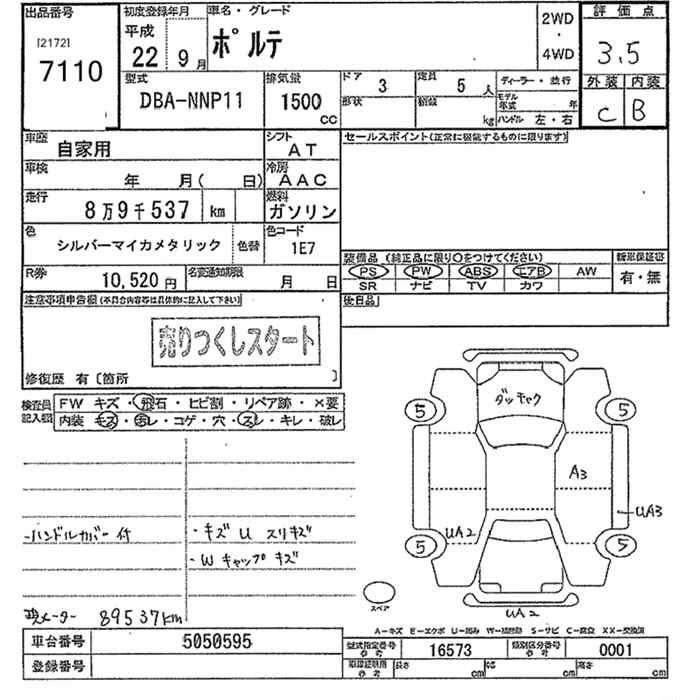 出品番号
[2172]
7110
初度登録年月
平成
22 9月
車名・グレード
ポルテ
2WD
・
4WD
評価点
3.5
外装 内装
C B
型式
DBA-NNP11
排気量
1500
CC
ドア
3
定員
5 人
形状
積載
kg
ディーラー・並行
モデル年式 年
ハンドル 左・右
車歴
自家用
シフト
AT
車検
年 月( 日)
冷房
AAC
走行
8万9千537 km
燃料
ガソリン
色
シルバーマイカメタリック
色替
色コード
1E7
R券
10,520 円
名変通知期限
月 日
セールスポイント(正常に機能するものに限ります)
装備品 (純正品に限り○をつけてください)
PS PW ABS エアB AW
SR ナビ TV カワ
新車保証書
有・無
後日品
注意事項申告欄(不具合内容等は具体的に記入して下さい)
売りつくしスタート
修復歴 有〔箇所 〕
検査員記入欄
FW キズ・飛石・ヒビ割・リペア跡・×要
内装 キズ・ヨレ・コゲ・穴・スレ・キレ・破レ
-ハンドルカバー付
・キズ U スリキズ
・W キャップキズ
メーター 89537km
ダッキャク
5
5
5
5
A3
UA3
UA2
UA2
スペア
A-キズ E-エクボ U-凹み W-補修跡 S-サビ C-腐食 XX-交換済
車台番号
5050595
登録番号
型式指定番号
参考
16573
類別区分番号
参考
0001
車庫証明用
参考
長さ cm
幅 cm
高さ cm